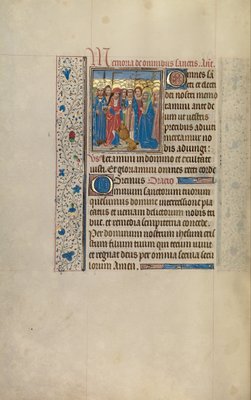 Memoria de omnibus sanctis. Ant.
Omnes sa
ti et electi
dei nostri memo
ramini ante de
um ut vestris
precibus adiuti
mereamur vo
bis adiungi.
Vs Letamini in domino et exultate
iusti. Et gloriamini omnes recti corde
Oremus Oracio
Omnium sanctorum tuorum
quesumus domine intercessione pla
catus et veniam delictorum nobis tri
bue et remedia sempiterna concede.
Per dominum nostrum ihesum cri
stum filium tuum qui tecum vivit
et regnat deus per omnia secula secu
lorum Amen.